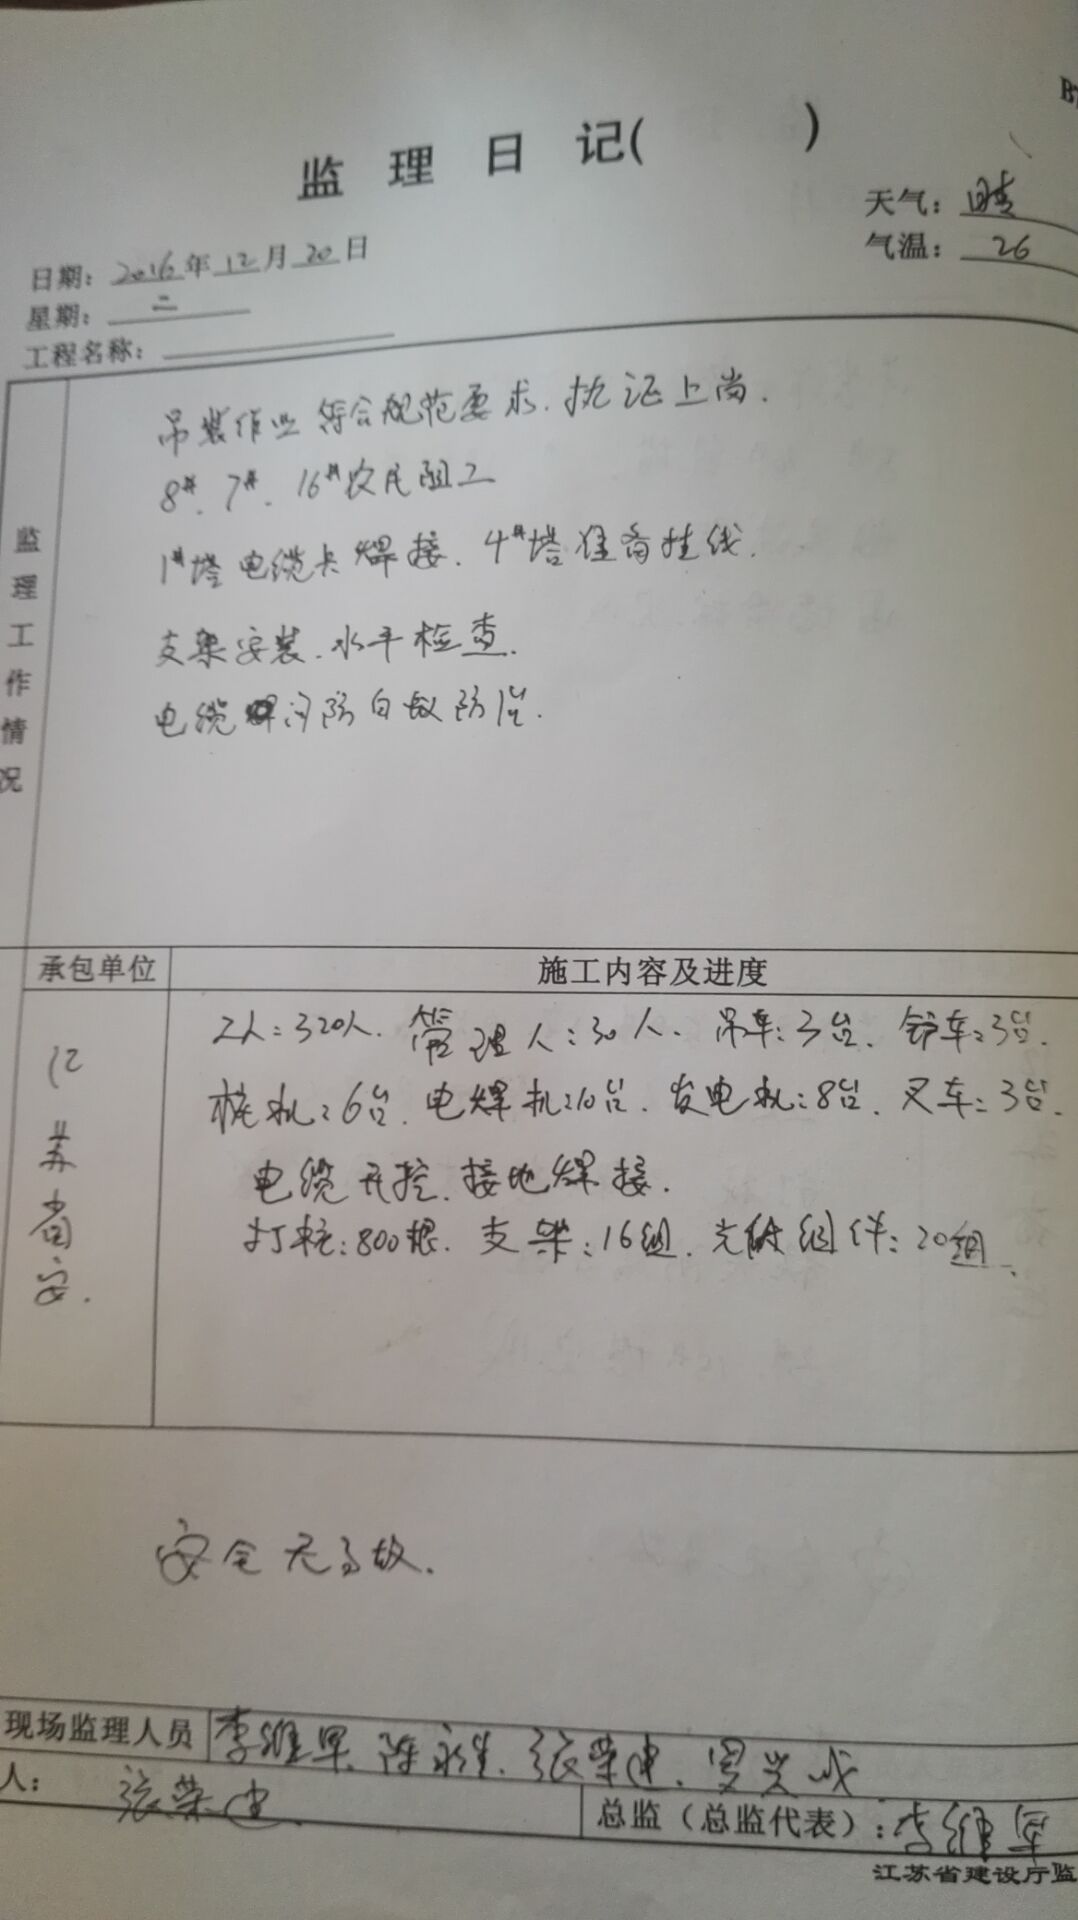 B
监 理 日 记( )
天气：晴
气温：26
日期：2016年12月20日
星期：二
工程名称：
监理工作情况
吊装作业符合规范要求.执证上岗.
8#.7#.16#农民阻工
1#塔电缆卡焊接.4#塔准备挂线.
支架安装.水平检查.
电缆沟防
承包单位
施工内容及进度
江苏省安.
工人:320人.管理人:30人.吊车:3台.铲车:3台.
桩机:6台.电焊机:10台.发电机:8台.叉车:3台.
电缆开挖.接地焊接.
打桩:800根.支架:16组.光伏组件:20组.
安全无事故.
现场监理人员
李维军.陈永生.张荣建.
人：
张荣建
总监（总监代表）：李维军
江苏省建设厅监